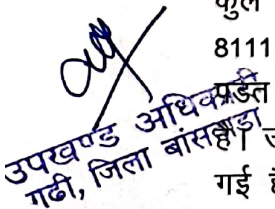 कुल
8111
पडत
है।
गई
उपखण्ड अधिकारी
गढी, जिला बांसवाड़ा